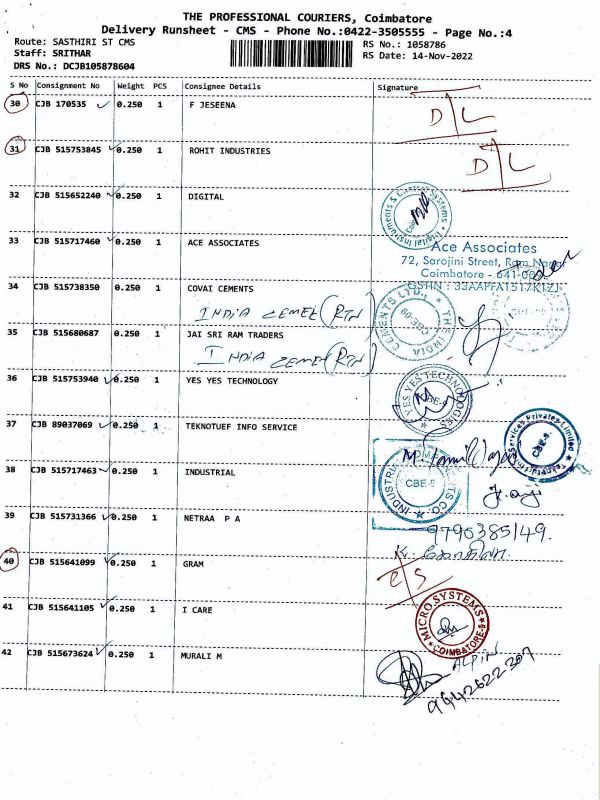 THE PROFESSIONAL COURIERS, Coimbatore
Delivery Runsheet - CMS - Phone No.:0422-3505555 - Page No.:4
Route: SASTHIRI ST CMS
RS No.: 1058786
Staff: SRITHAR
RS Date: 14-Nov-2022
DRS No.: DCJB105878604
S No Consignment No Weight PCS Consignee Details Signature
30 CJB 170535 0.250 1 F JESEENA D/L
31 CJB 515753845 0.250 1 ROHIT INDUSTRIES D/L
32 CJB 515652240 0.250 1 DIGITAL
33 CJB 515717460 0.250 1 ACE ASSOCIATES
Ace Associates
72, Sarojini Street, Ram Nagar
Coimbatore - 641 009
GSTIN : 33AAPFA1517K1ZJ
34 CJB 515738350 0.250 1 COVAI CEMENTS
INDIA CEMET (RTN)
THE INDIA CEMENTS LTD. CBE-09
35 CJB 515680687 0.250 1 JAI SRI RAM TRADERS
INDIA CEMET (RTN)
36 CJB 515753940 0.250 1 YES YES TECHNOLOGY
YES YES TECHNOLOGIES CBE-9
37 CJB 89037069 0.250 1 TEKNOTUEF INFO SERVICE
Services Private Limited CBE-9
38 CJB 515717463 0.250 1 INDUSTRIAL
INDUSTRIAL CBE-9
39 CJB 515731366 0.250 1 NETRAA P A
9790385149.
40 CJB 515641099 0.250 1 GRAM
41 CJB 515641105 0.250 1 I CARE
MICRO SYSTEMS COIMBATORE-9
42 CJB 515673624 0.250 1 MURALI M
ALPIN
9442622307